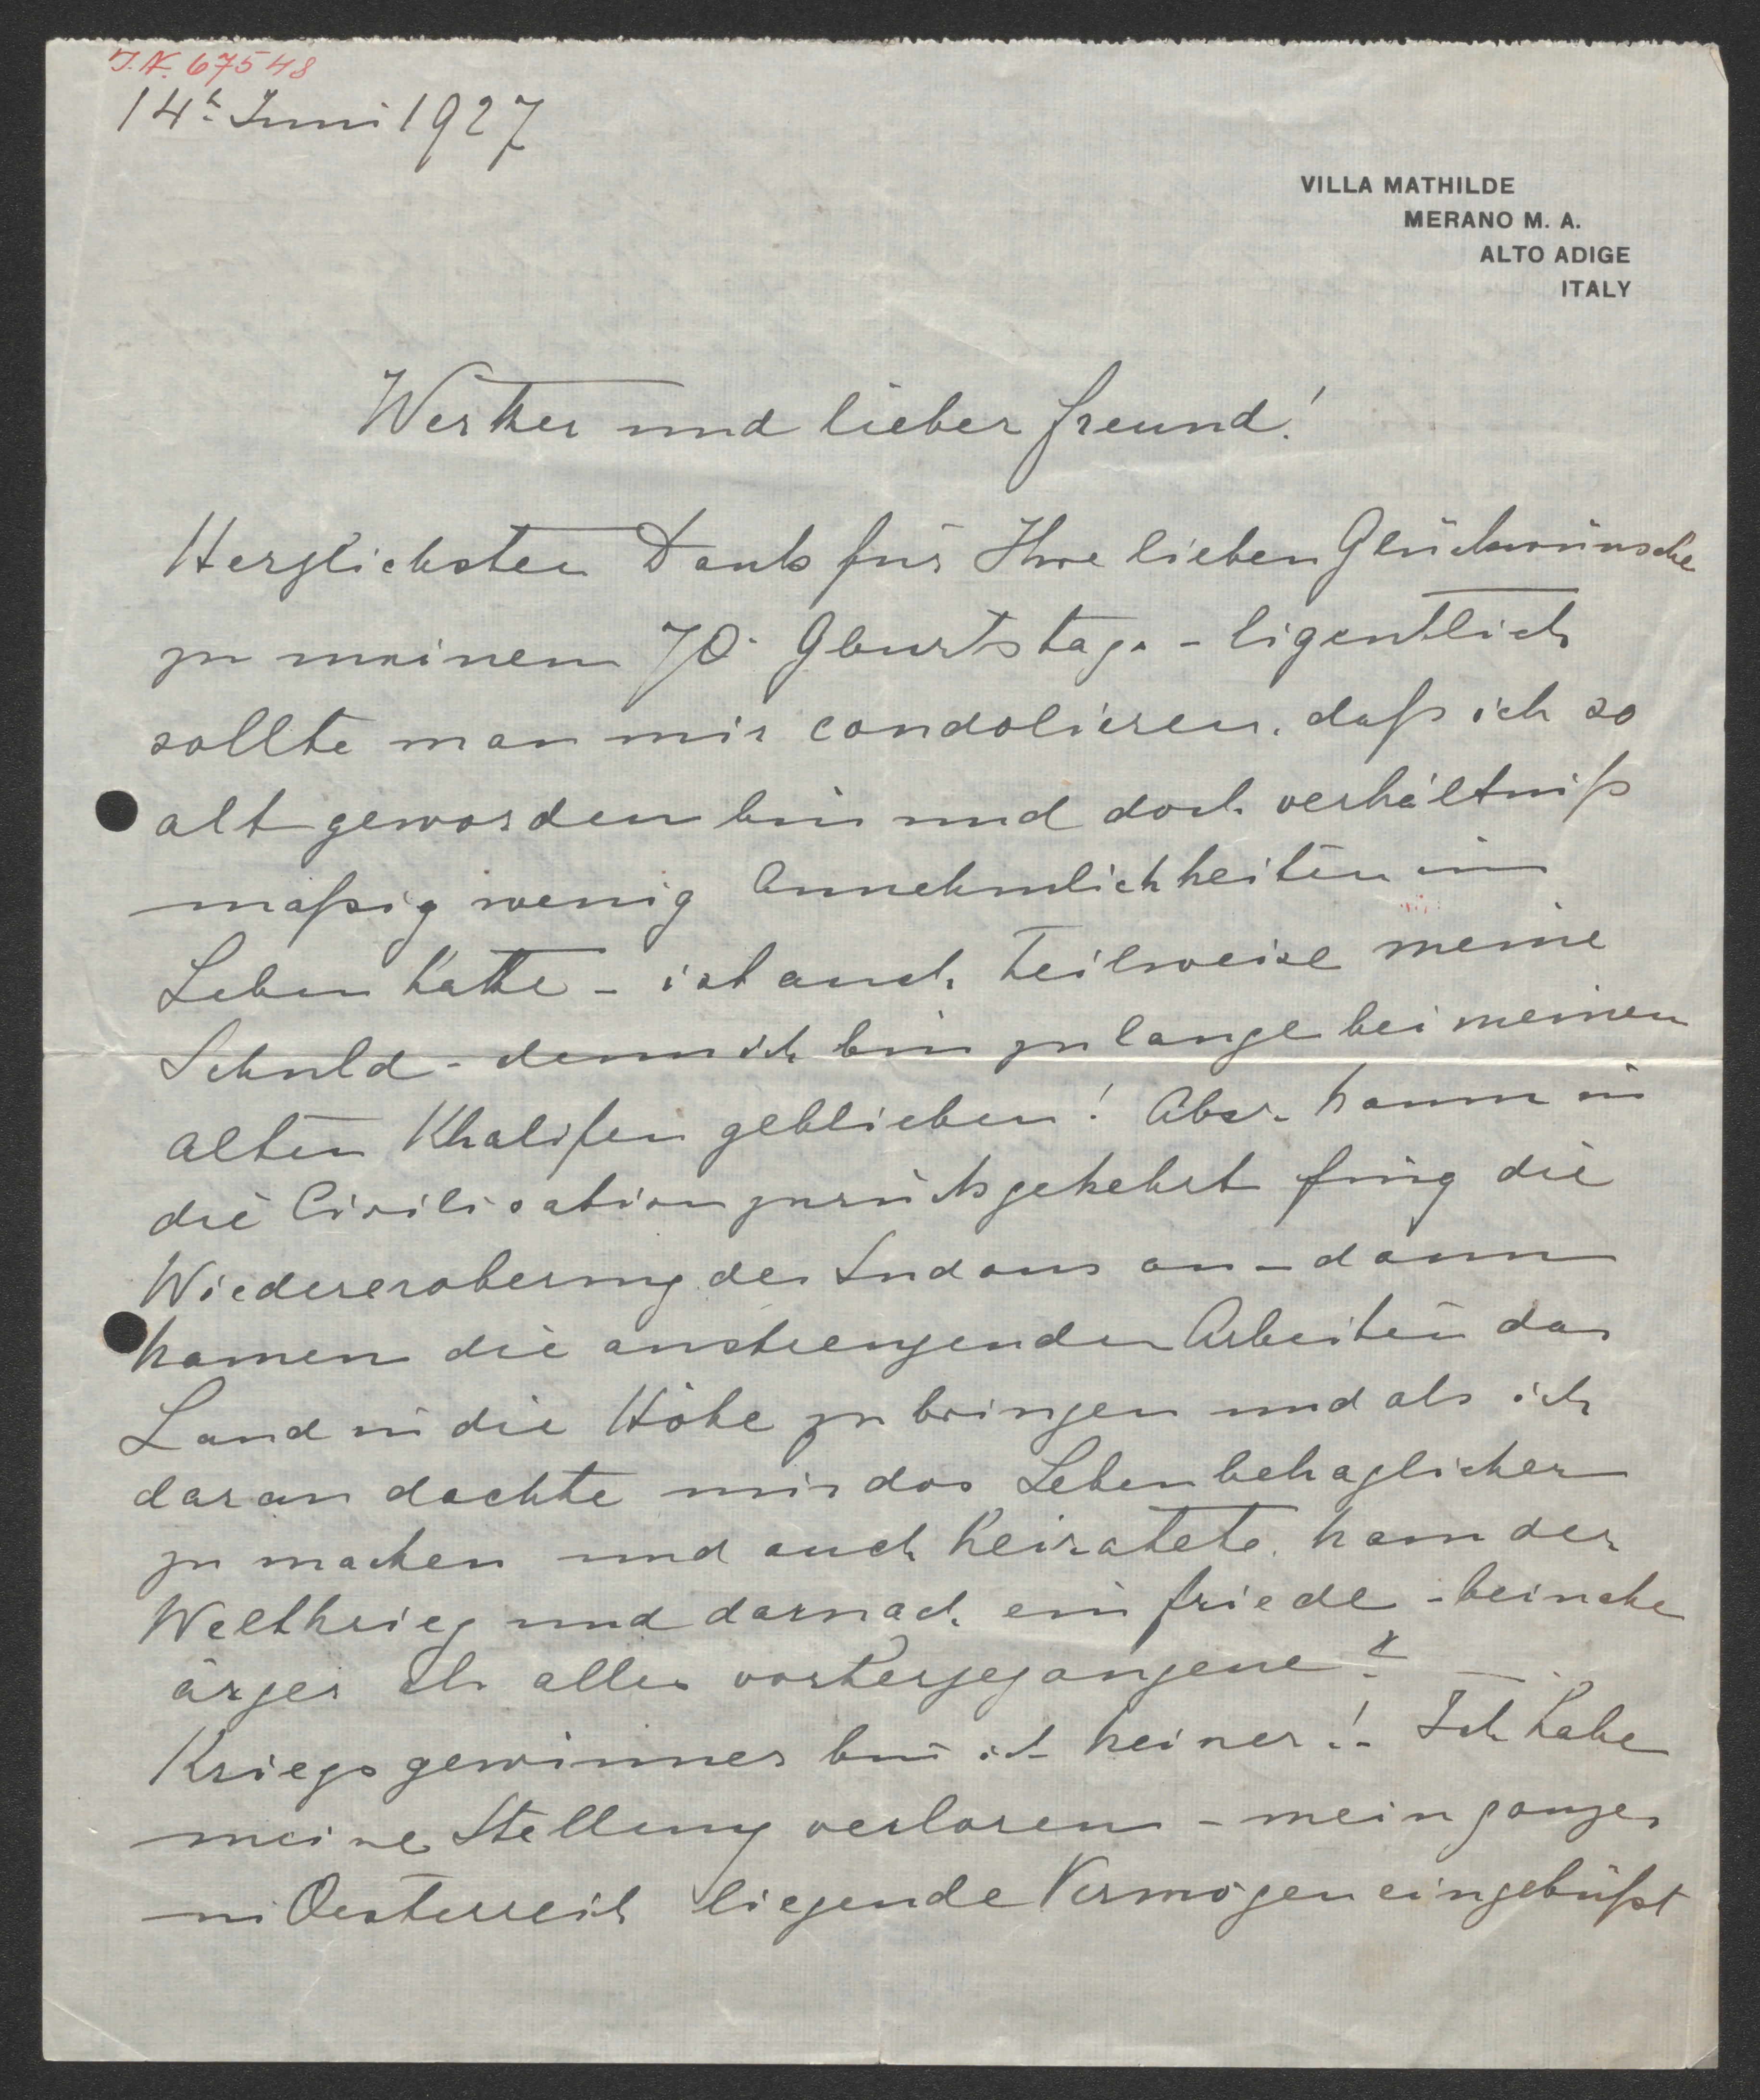 J.N. 67548
14t Juni 1927
VILLA MATHILDE
MERANO M. A.
ALTO ADIGE
ITALY
Werther und lieber Freund!
Herzlichsten Dank für Ihre lieben Glückwünsche
zu meinem 70. Geburtstage - Eigentlich
sollte man mir condolieren, daß ich so
alt geworden bin und doch verhältniß
mäßig wenig Annehmlichkeiten im
Leben hatte - ist auch teilweise meine
Schuld - denn ich bin zu lange bei meinen
alten Khalifen geblieben! Aber kaum in
die Civilisation zurückgekehrt fing die
Wiedereroberung des Sudans an - dann
kamen die anstrengenden Arbeiten das
Land in die Höhe zu bringen und als ich
daran dachte mir das Leben behaglicher
zu machen und auch heiratete, kam der
Weltkrieg und darnach ein Friede - beinahe
ärger als alles vorhergegangene!
Kriegsgewinner bin ich keiner!- Ich habe
meine Stellung verloren - mein ganzes
in Oesterreich liegende Vermögen eingebüßt